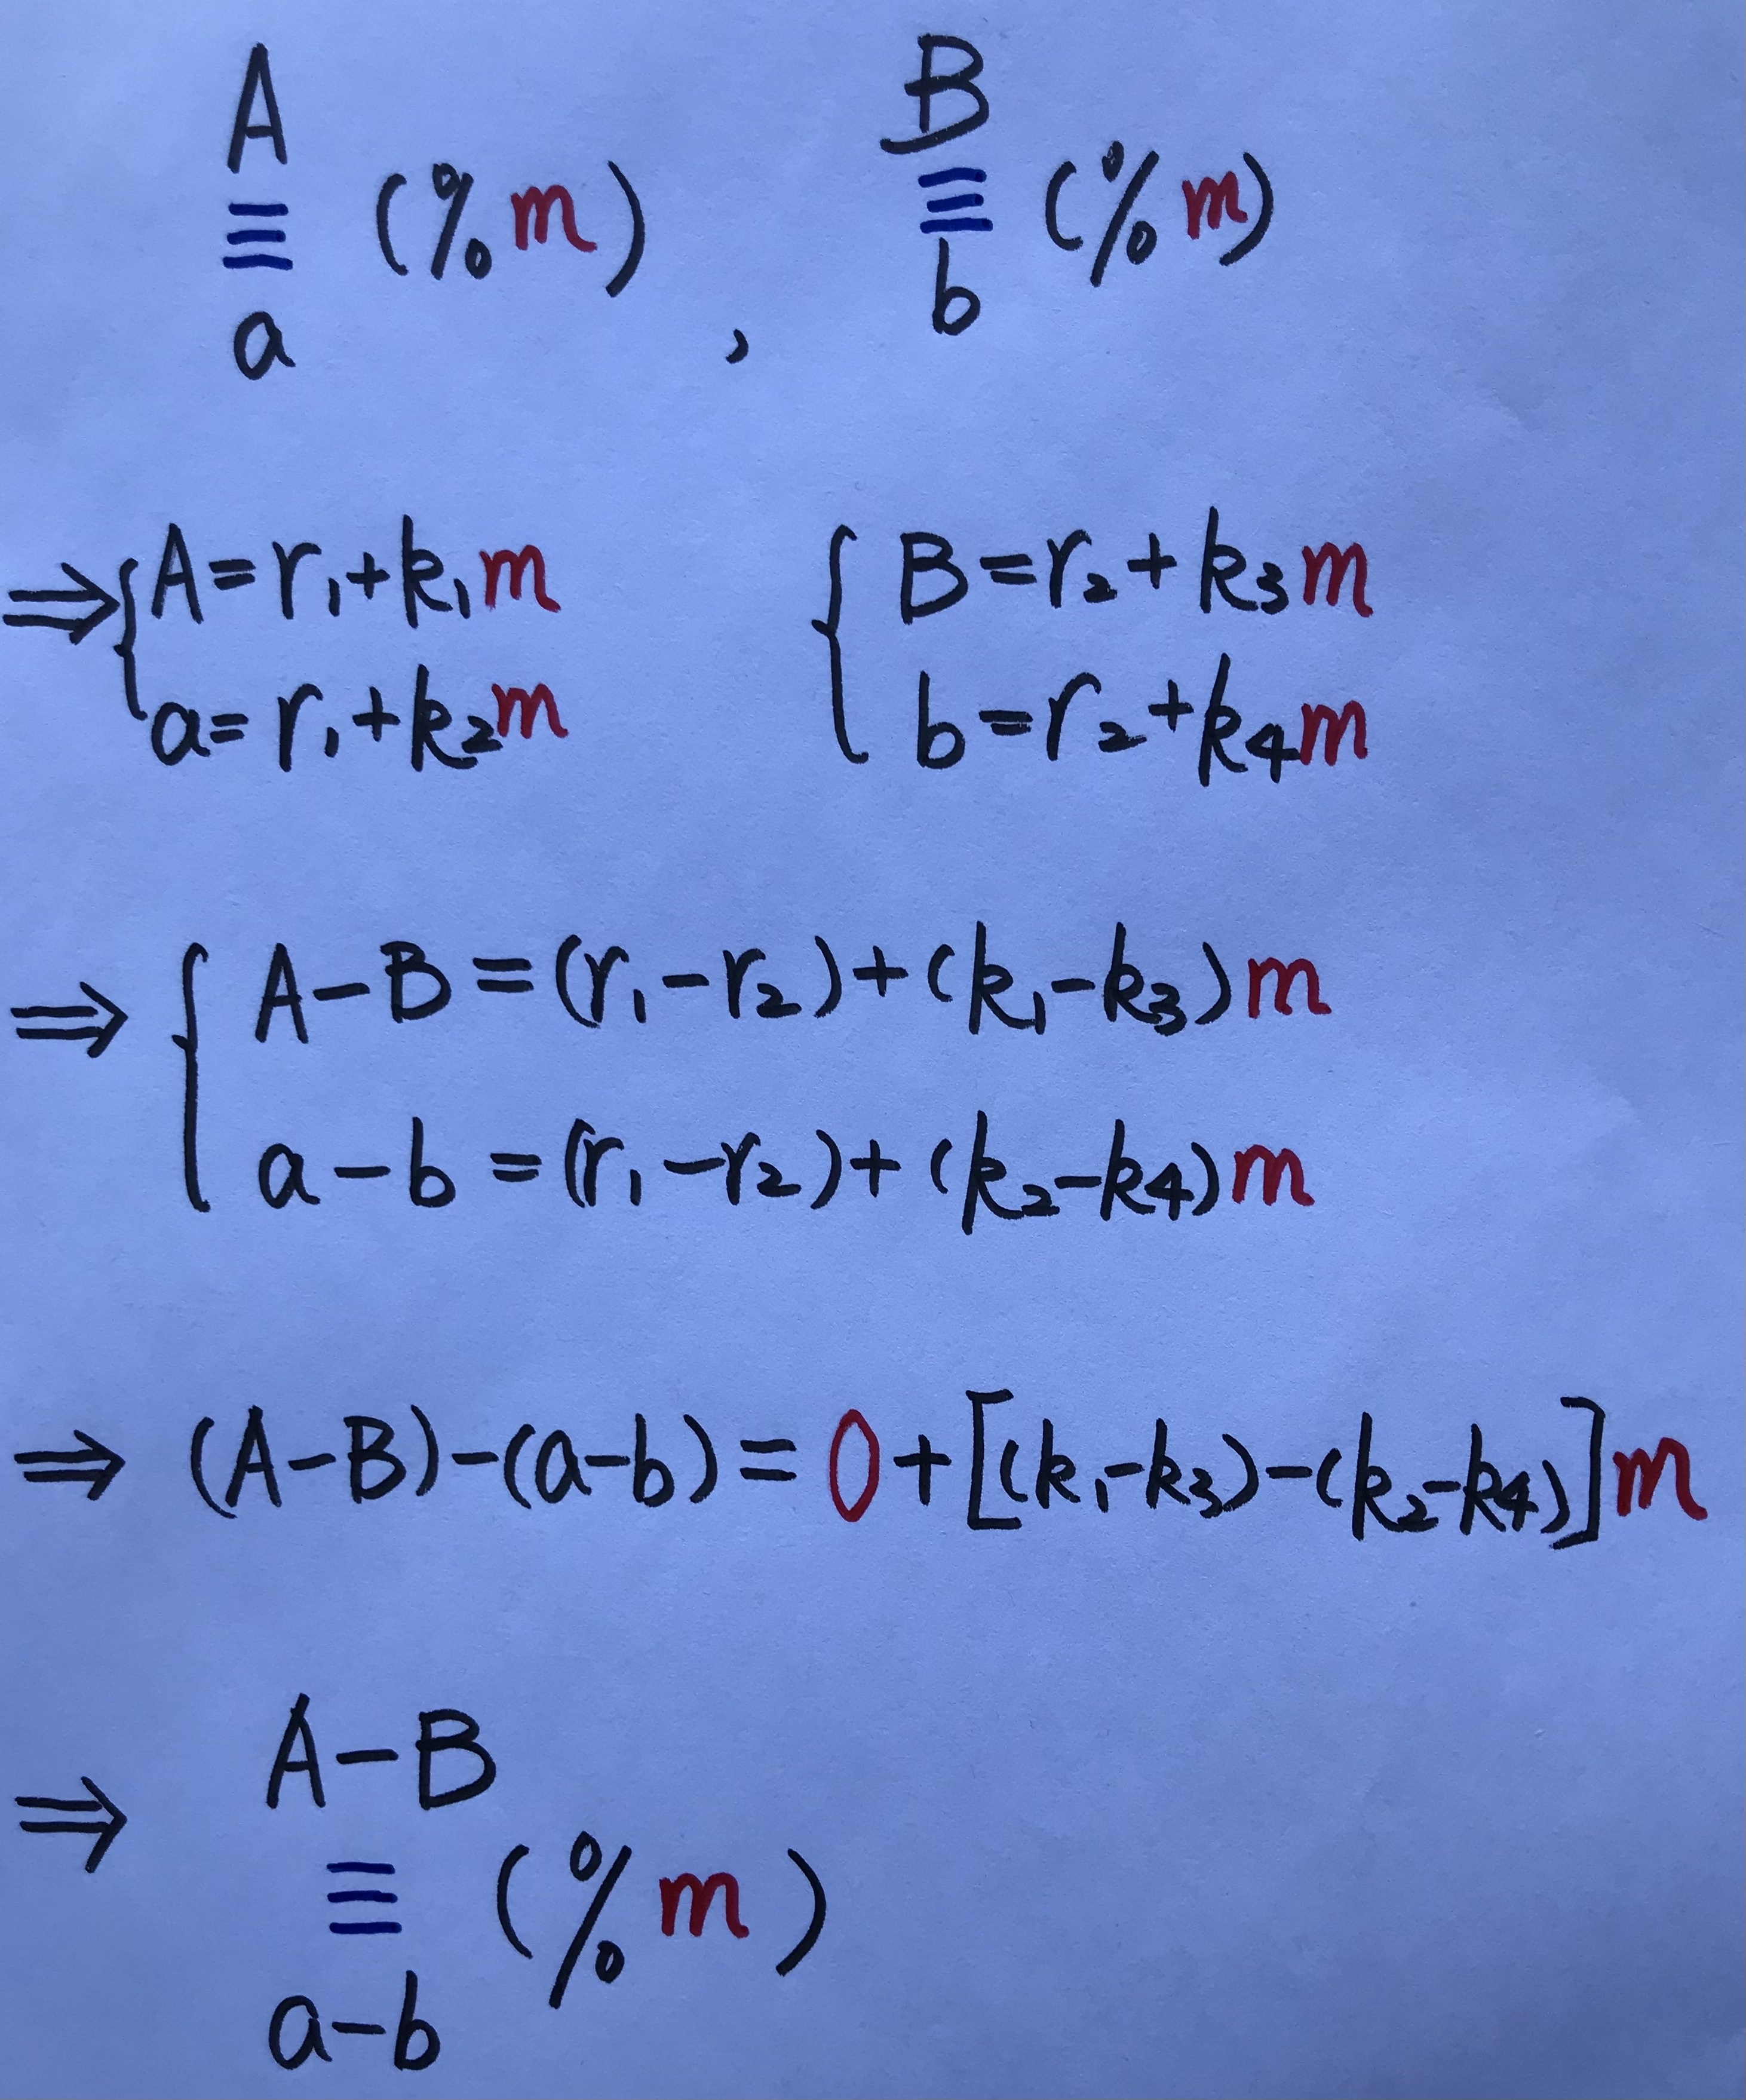 A B
≡ (%m) ≡ (%m)
a , b
⇒ { A=r₁+k₁m { B=r₂+k₃m
a=r₁+k₂m b=r₂+k₄m
⇒ { A-B=(r₁-r₂)+(k₁-k₃)m
a-b=(r₁-r₂)+(k₂-k₄)m
⇒ (A-B)-(a-b)=0+[(k₁-k₃)-(k₂-k₄)]m
A-B
⇒ ≡ (%m)
a-b